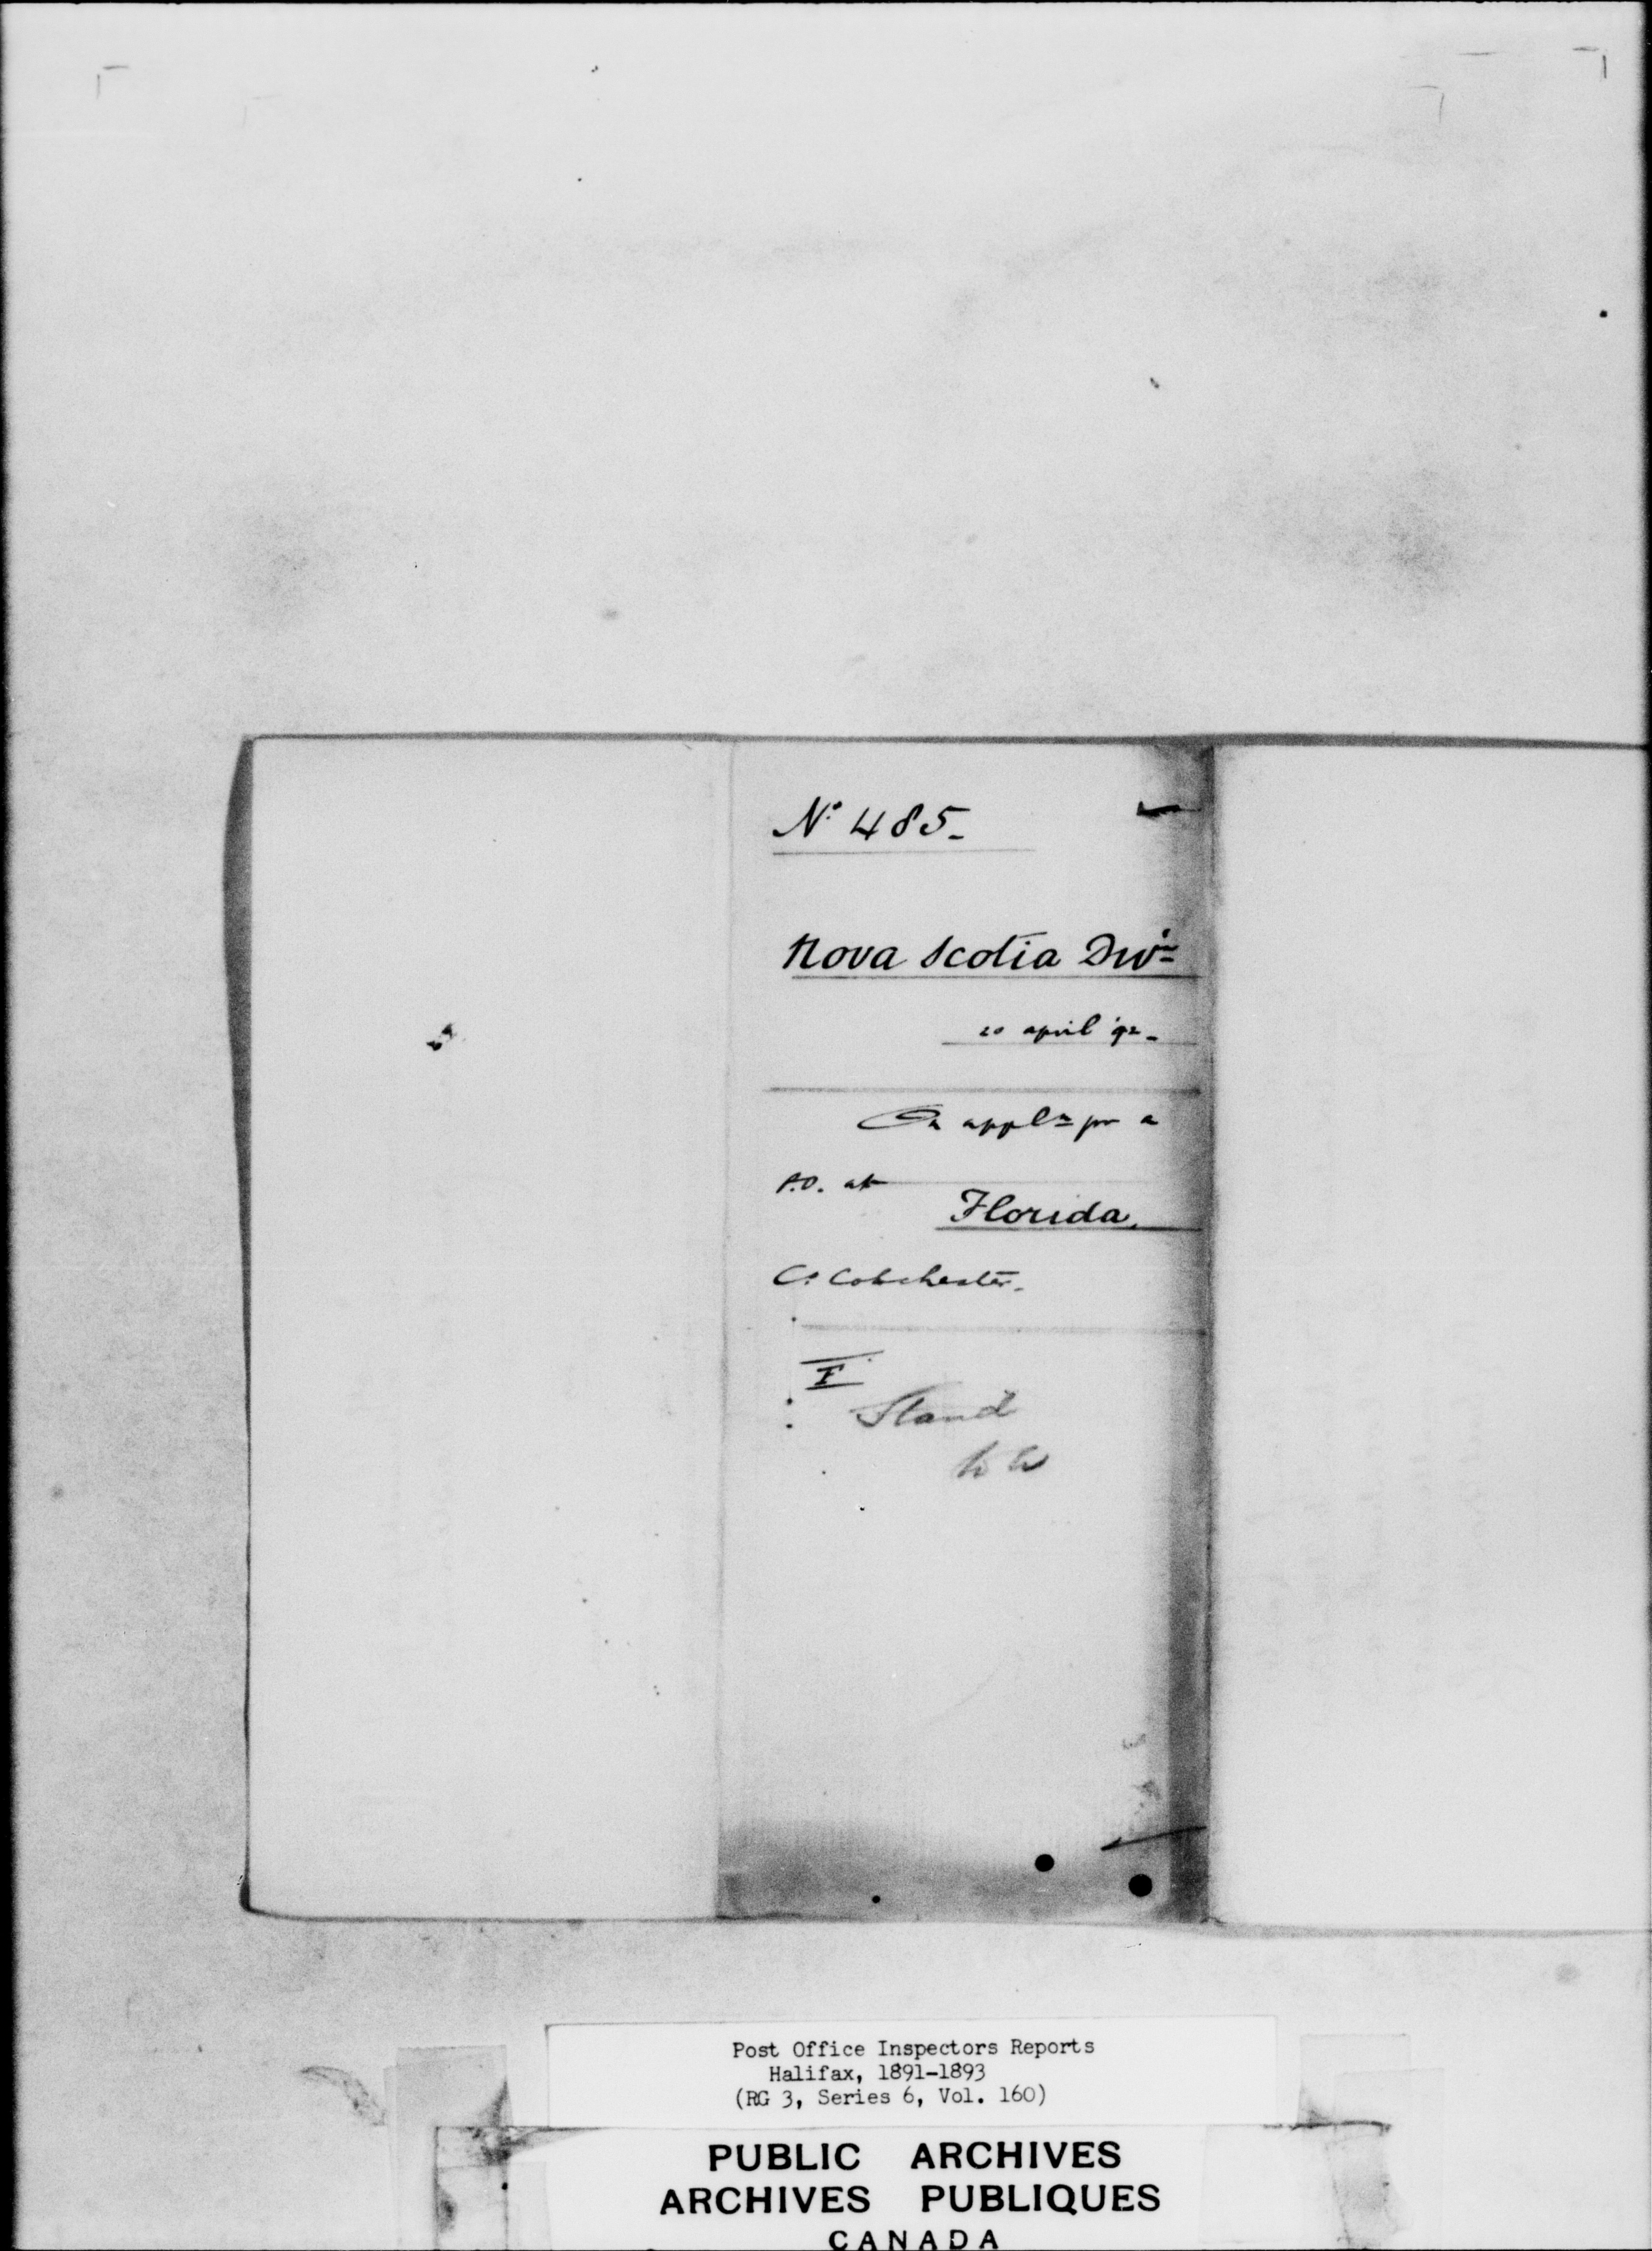 No 485.
Nova Scotia Divn
20 april '92.
On appln for a
P.O. at
Florida,
Co Colchester.
F
Stand
Post Office Inspectors Reports
Halifax, 1891-1893
(RG 3, Series 6, Vol. 160)
PUBLIC ARCHIVES
ARCHIVES PUBLIQUES
CANADA